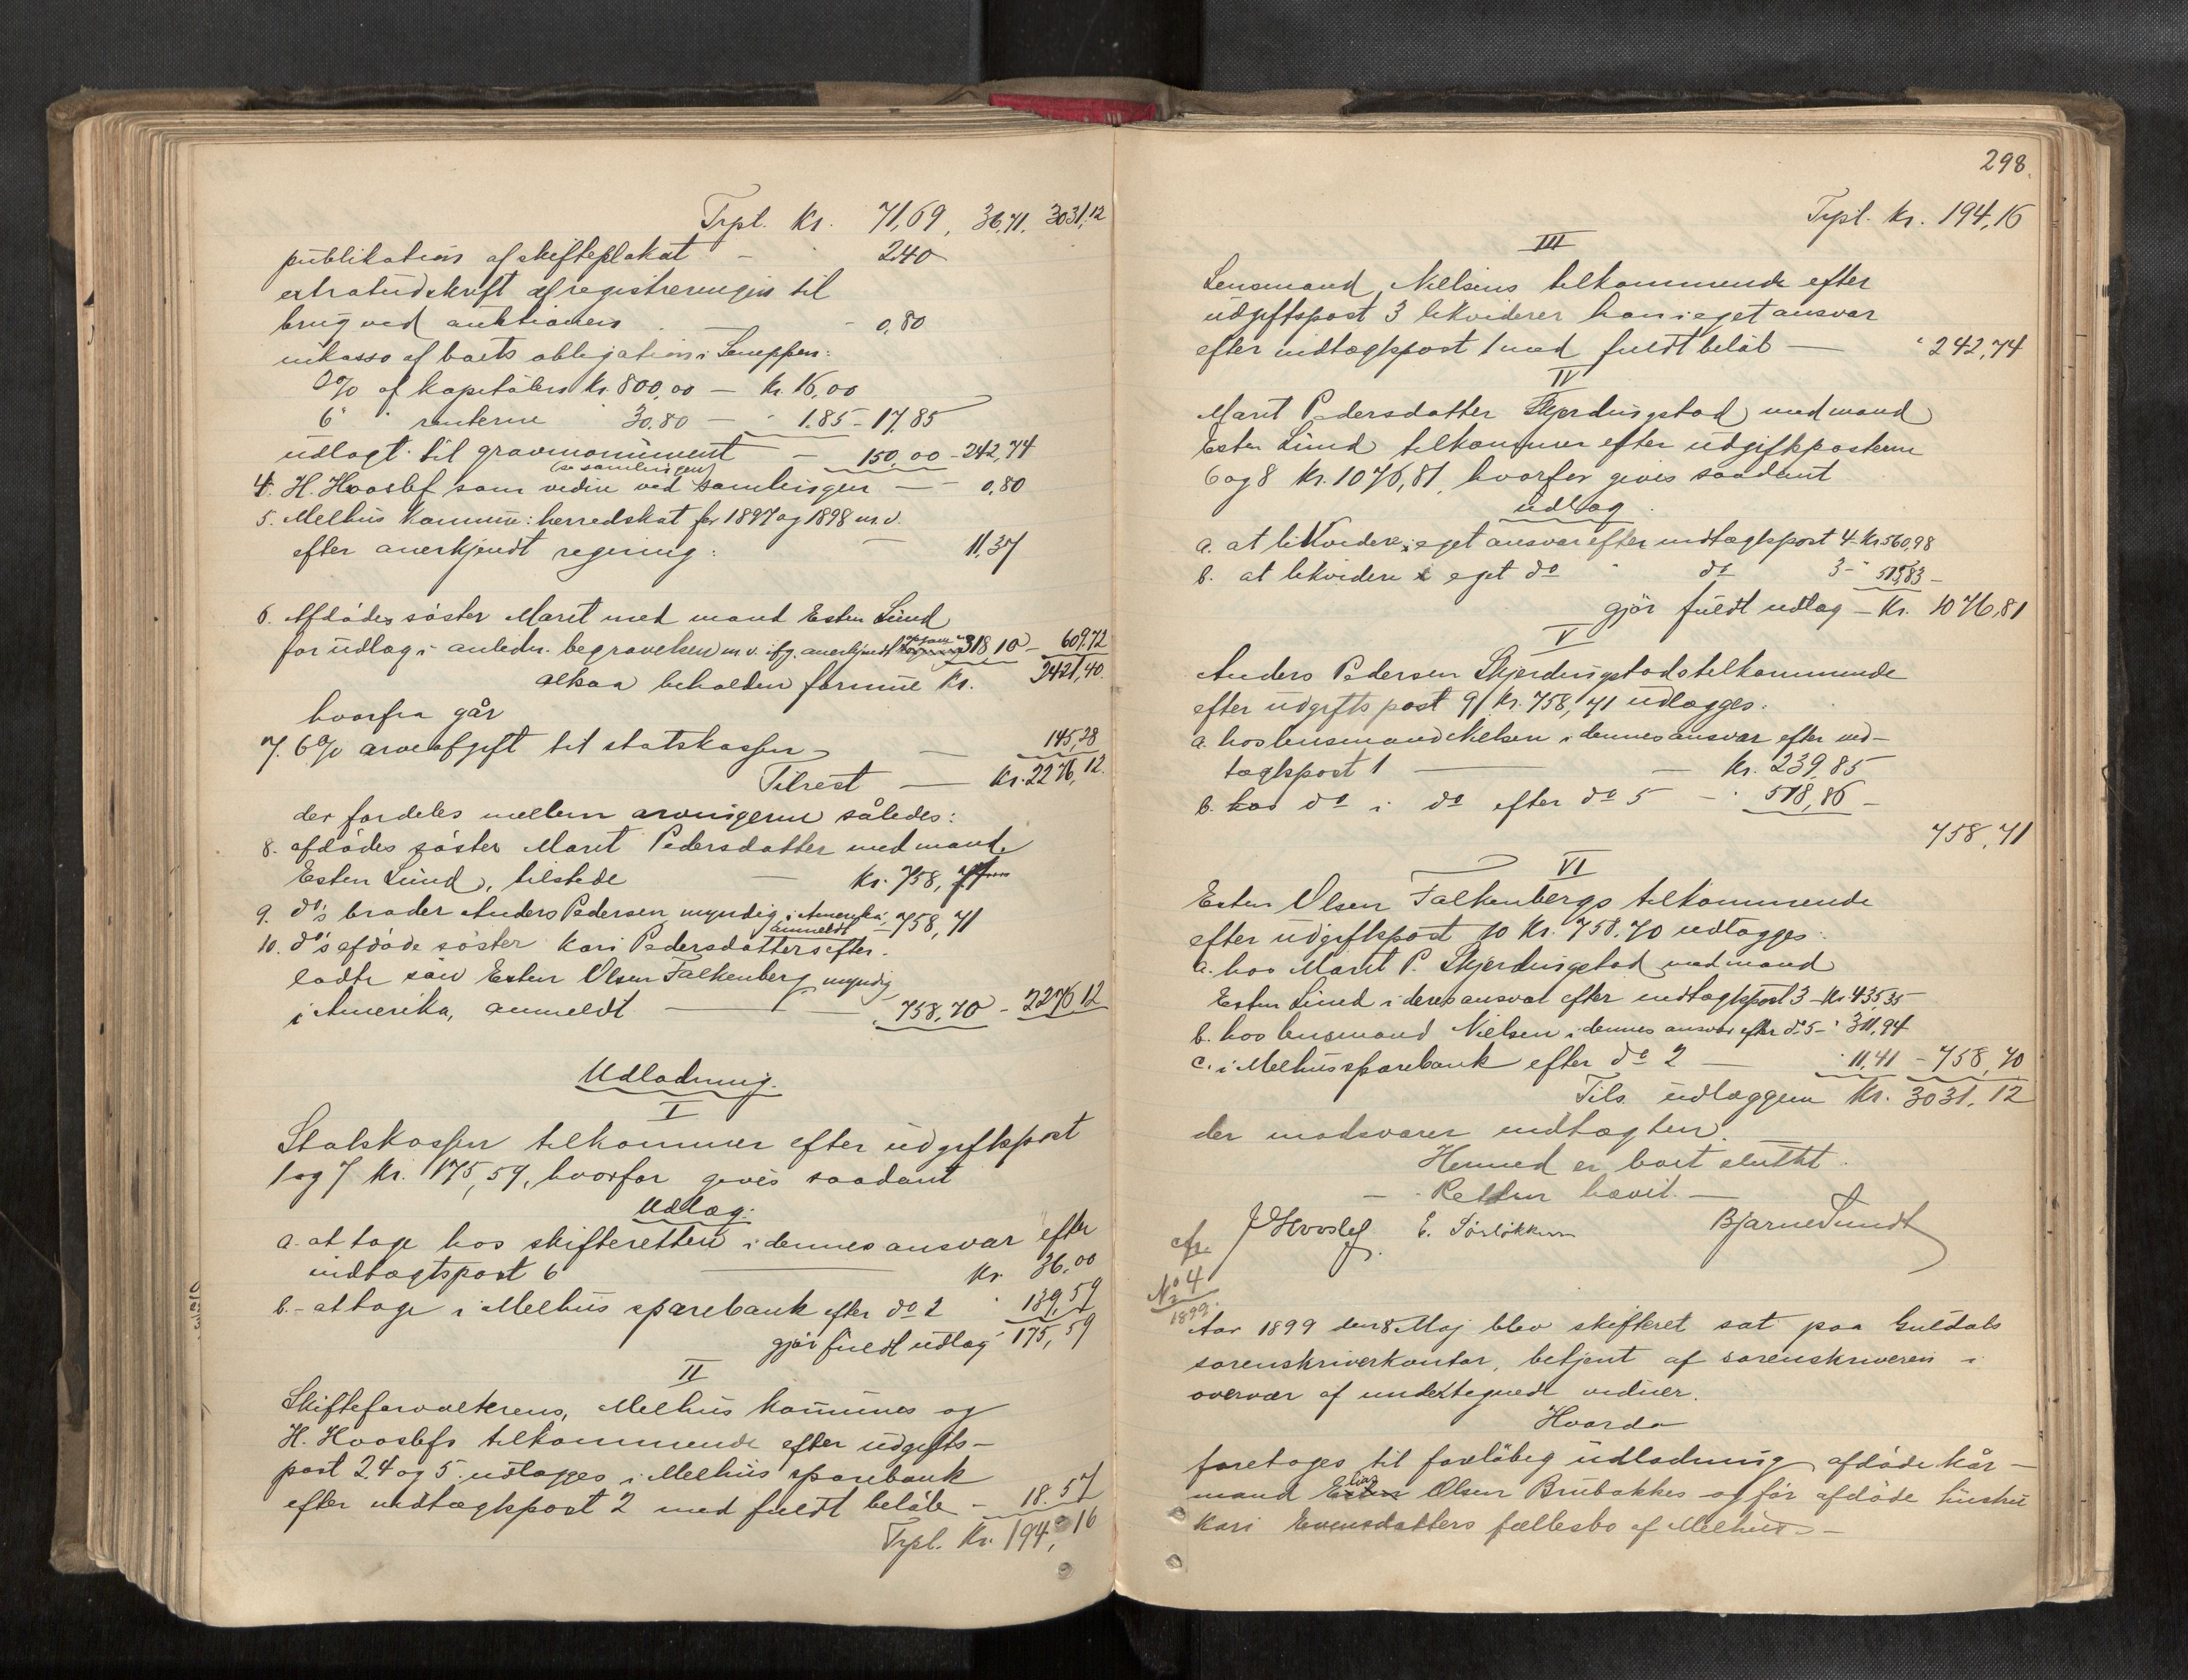 Trpl. Kr. 71,69, 36,71, 3031,12
publikation af skifteplakat - 2.40
extraudskrift af registreringen til
brug ved auktionen - 0,80
inkasso af boets obligation i
2% af kapitalen Kr. 800,00 - Kr. 16,00
6" " renterne " 30.80 - " 1.85 - 17.85
udlagt til gravmonument - 150,00 - 242,74
(se samlingen)
4. H. Hooslef som vidne ved samlingen - 0,80
5. Melhus Kommune: herredskat for 1897 og 1898 m.v.
efter anerkjendt regning: - 11,37
6. Afdødes søster Marit med mand Esten Lund
for udlæg i anledn. begravelsen m.v. ifg. anerkjendt 318 10 - 609,72
altsaa beholden formue Kr. 2421,40.
hvorfra går
7. 6% arveafgift til statskassen - 145,28
Tilrest - Kr. 2276,12.
der fordeles mellem arvingerne således:
8. afdødes søster Marit Pedersdatter med mand
Esten Lund, tilstede - Kr. 758,71
9. do's broder Anders Pedersen myndig, i Amerika - 758,71
anmeldt
10. do's afdøde søster Kari Pedersdatters efter-
ladte søn Esten Olsen Falkenberg myndig
i Amerika, anmeldt - 758,70 - 2276 12
Udlodning.
I
Statskassen tilkommer efter udgiftspost
1 og 7 Kr. 175,59, hvorfor gives saadant
Udlæg:
a. at tage hos skifteretten i dennes ansvar efter
indtægtspost 6 Kr. 36,00
b. - at tage i Melhus sparebank efter do 2 " 139,59
gjør fuldt udlæg 175,59
II
Skifteforvalterens, Melhus Kommunes og
H. Hooslefs tilkommende efter udgifts-
post 2.4 og 5. udlægges i Melhus sparebank
efter indtægtspost 2 med fuldt beløb - 18.57
Trpl. Kr. 194,16
298.
Trpl. Kr. 194,16
III
Lensmand Nielsens tilkommende efter
udgiftspost 3 likviderer han i eget ansvar
efter indtægtspost 1 med fuldt beløb - " 242,74
IV
Marit Pedersdatter Skjerdingstad med mand
Esten Lund tilkommer efter udgiftsposterne
6 og 8 Kr. 1076,81, hvorfor gives saadant
udlæg
a. at likvidere i eget ansvar efter indtægtspost 4 - Kr 560,98
b. at likvidere i eget do " do 3 - " 515,83 -
gjør fuldt udlæg - Kr. 1076,81
V
Anders Pedersen Skjerdingstads tilkommende
efter udgiftspost 9 Kr. 758,71 udlægges.
a. hos lensmand Nielsen i dennes ansvar efter ind-
tægtspost 1 - Kr. 239,85
b. hos do i do efter do 5 - " 518,86 -
758,71
VI
Esten Olsen Falkenbergs tilkommende
efter udgiftspost 10 Kr. 758.70 udlægges:
a. hos Marit P. Skjerdingstad med mand
Esten Lund i deres ansvar efter indtægtspost 3 - Kr. 435,35
b. hos lensmand Nielsen i dennes ansvar efter do 5 - " 311,94
c. i Melhus sparebank efter do 2 - " 11,41 - 758,70
Tils. udlæggene Kr. 3031,12
der modsvarer indtægten.
Hermed er boet sluttet.
- Retten hævet. -
JHooslef. E. Sørløkken Bjarne Sundt
afs.
No 4
1899.
Aar 1899 den 8 Maj blev skifteret sat paa Guldals
sorenskriverkontor, betjent af sorenskriveren i
overvær af undertegnede vidner.
Hvorda
foretoges til foreløbig udlodning afdøde kår-
mand Esten Olsen Brubakkes og før afdøde hustru
Kari Evensdatters fællesbo af Melhus -